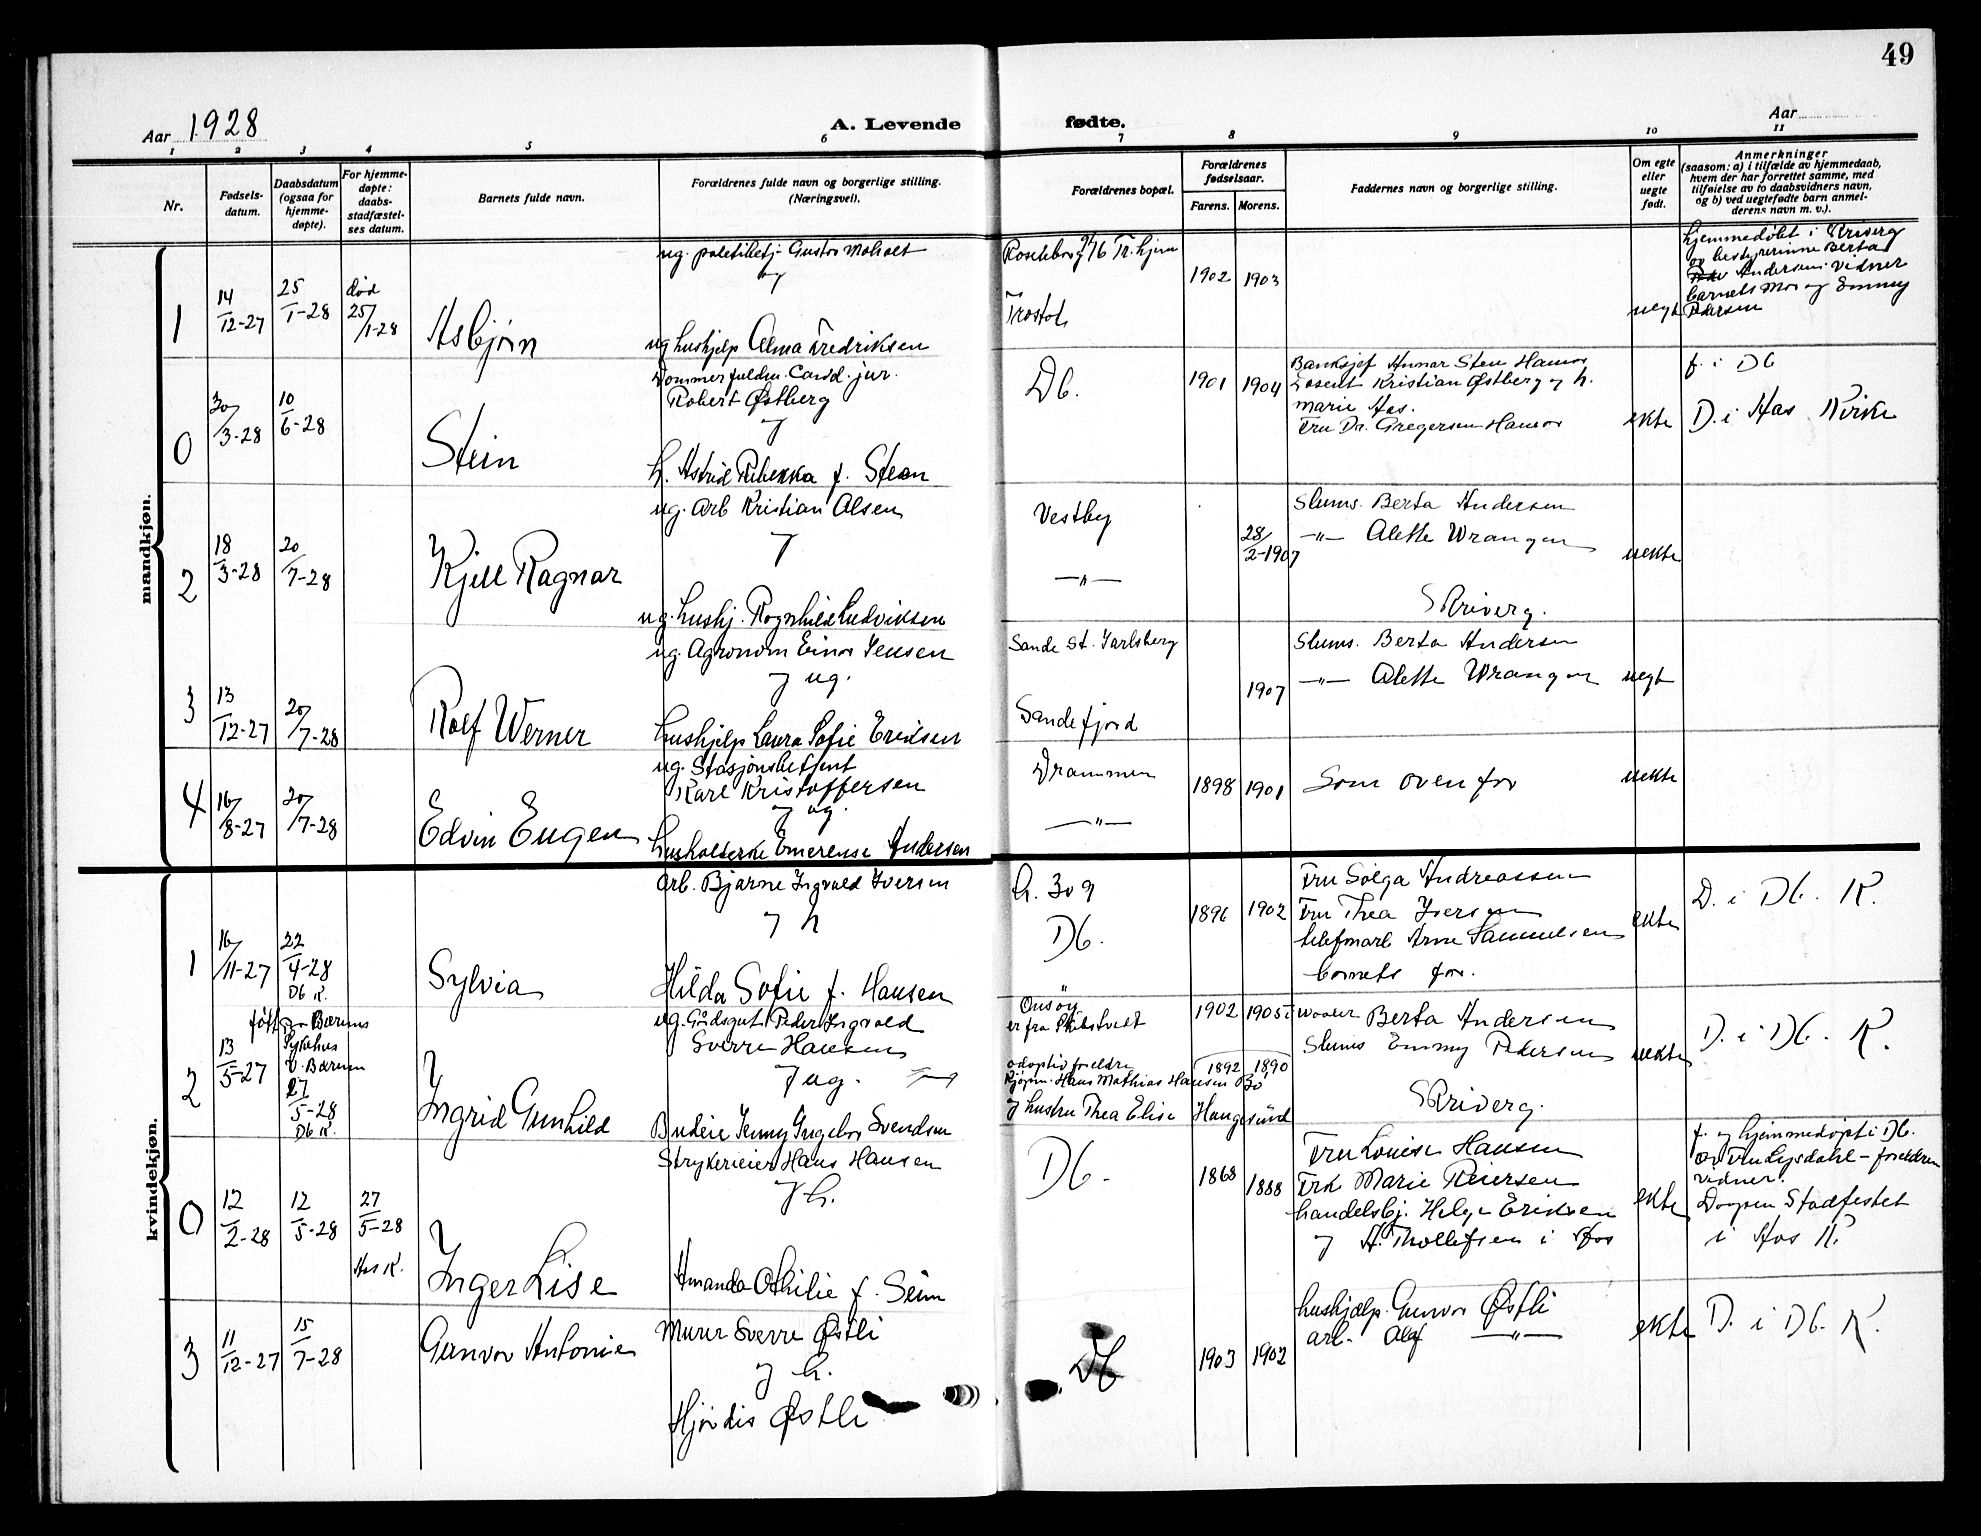 49
Aar 1928
A. Levende
fødte.
Aar
1
2
3
4
5
6
7
8
9
10
11
Nr.
Fødsels-
datum.
Daabsdatum
(ogsaa for
hjemme-
døpte).
For hjemme-
døpte:
daabs-
stadfæstel-
ses datum.
Barnets fulde navn.
Forældrenes fulde navn og borgerlige stilling.
(Næringsvei).
Forældrenes bopæl.
Forældrenes
fødselsaar.
Farens.
Morens.
Faddernes navn og borgerlige stilling.
Om egte
eller
uegte
født.
Anmerkninger
(saasom: a) i tilfælde av hjemmedaab,
hvem der har forrettet samme, med
tilføielse av to daabsvidners navn,
og b) ved uegtefødte barn anmel-
derens navn m. v.).
mandkjøn.
1
14/12-27
25/1-28
død
25/1-28
Asbjørn
ug. Gustav Moholt
og
ug hushjelp Alma Fredriksen
Tr. hjem
1902
1903
uegt
hjemmedøbt i
og bestyrerinne Berta
Andersen vidner
barnets Mor og Emmy
Pedersen
0
30/3-28
10/6-28
Stein
Dommerfuldm. Cand. jur.
Robert Østberg
og
h. Astrid Rebekka f. Steen
Db.
1901
1904
Banksjef Sten Hamar
Kristian Østberg og h.
Marie Aas.
Fru Dr. Gregersen Hamar
ekte
f. i Db
D. i Aas Kirke
2
18/3-28
20/7-28
Kjell Ragnar
ug. Arb Kristian Olsen
og
ug. hushj. Ragnhild Ludviksen
Vestby
—"—
28/2-1907
Slums. Berta Andersen
—"— Alette Wrangen
uekte
3
13/12-27
20/7-28
Rolf Werner
ug. Agronom Einar Jensen
og ug.
hushjelp Laura Sofie Eriksen
Sande St. Jarlsberg
Sandefjord
1907
Slums. Berta Andersen
—"— Alette Wrangen
uegt
4
16/8-27
20/7-28
Edvin Eugen
ug. Stasjonsbetjent
Karl Kristoffersen
og ug.
husholderske Emerense Andersen
Drammen
—"—
1898
1901
Som ovenfor
uekte
kvindekjøn.
1
16/11-27
22/4-28
Db K.
Sylvia
Arb. Bjarne Ingvald Iversen
og h
Hilda Sofie f. Hansen
h. 309
Db.
1896
1902
Fru Solga Andreassen
Fru Thea Iversen
Arne Samuelsen
barnets for.
ekte
D. i Db. K.
2
født på Bærums
Sykehus
V. Bærum
13/5-27
27/5-28
Db K.
Ingrid Gunhild
ug. Gårdsgut Peder Ingvald
Sverre Hansen
og ug.
Budeie Jenny Ingeborg Svendsen
Onsøy
er fra
adoptivforeldre
Kjøpm. Hans Mathias Hansen Bö
og hustru Thea Elise Haugesund
1902
1905
1892
1890
Berta Andersen
Slums Emmy Pedersen
uekte
D. i Db. K.
0
12/2-28
12/5-28
27/5-28
Aas K.
Inger Lise
Strykerieier Hans Hansen
og h.
Amanda Othilie f. Seim
Db.
1868
1888
Fru Louise Hansen
Frk Marie Reiersen
handelsbj. Helge Eriksen
og A. Thollefsen i Aas
ekte
f. og hjemmedøpt i Db.
av Fru Lysdahl – foreldrene
vidner.
Daapen Stadfestet
i Aas K.
3
11/12-27
15/7-28
Gunvor Antonie
Murer Sverre Østli
og h.
Hjørdis Østli
Db
1903
1902
hushjelp. Gunvor Østli
arb. Olaf —"—
ekte
D. i Db. K.